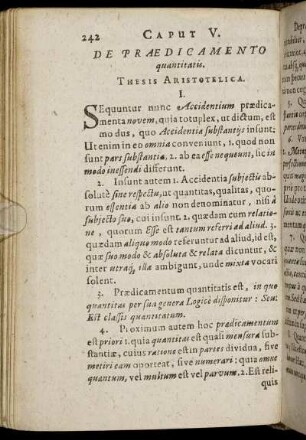 242 CAPUT V.
DE PRÆDICAMENTO
quantitatis.
THESIS ARISTOTELICA.
I.
SEquuntur nunc Accidentium prædica-
menta novem, quia totuplex, ut dictum, est
modus, quo Accidentia substantijs insunt;
Ut enim in eo omnia conveniunt, 1. quod non
sunt pars substantiæ, 2. ab ea esse nequeunt, sic in
modo inessendi differunt.
2. Insunt autem 1. Accidentia subjectis ab-
solutè sine respectu, ut quantitas, qualitas, quo-
rum essentia ab alio non denominatur, nisi à
subjecto suo, cui insunt. 2. quædam cum relatio-
ne, quorum Esse est tantum referri ad aliud. 3.
quædam aliquo modo referuntur ad aliud, id est,
quæ suo modo & absoluta & relata dicuntur, &
inter utraq, illa ambigunt, unde mixta vocari
solent.
3. Prædicamentum quantitatis est, in quo
quantitas per sua genera Logicè disponitur: Seu:
Est classis quantitatum.
4. Proximum autem hoc prædicamentum
est priori: 1. quia quantitas est quasi mensura sub-
stantiæ, cuius ratione est in partes dividua, sive
metiri eam oporteat, sive numerari: quia omne
quantum, vel multum est vel parvum. 2. Est reli-
quis